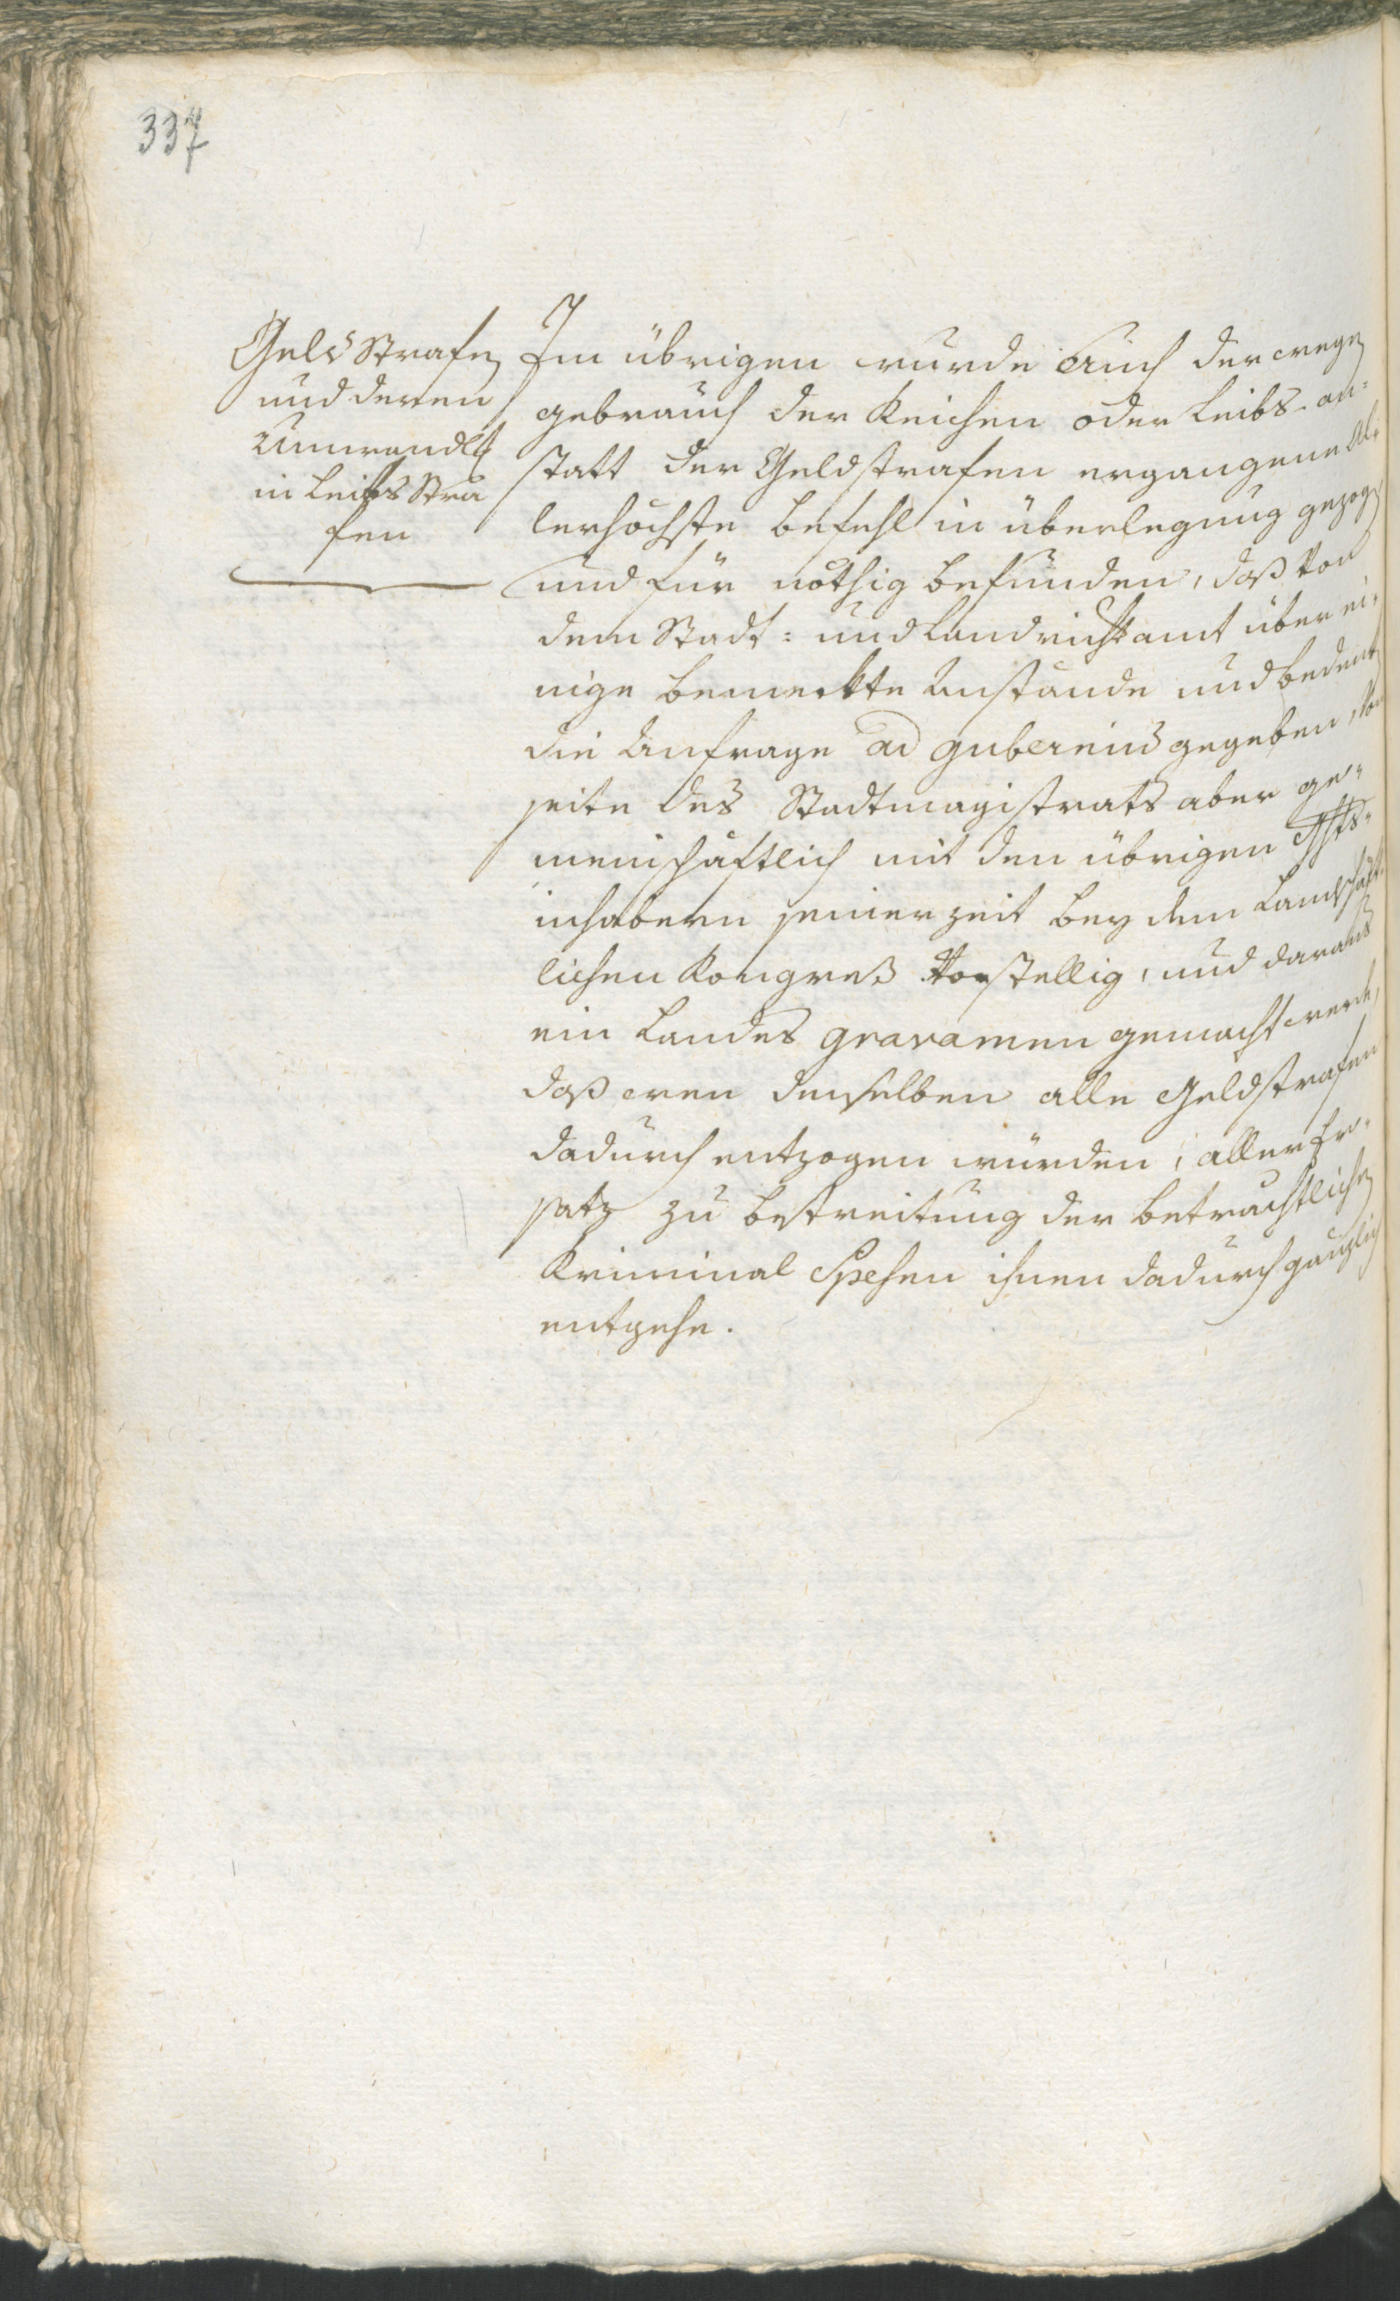 337
Geld Strafen
und deren
Umwandlg
in Leibs Stra
fen
Im übrigen wurde auch der wegen
gebrauch der Keichen oder Leibs- an-
statt der Geldstrafen ergangene Al-
lerhöchste befehl in überlegung gezogen
und für nöthig befunden, daß von
dem Stadt- und Landrichtamt über ei-
nige bemerkte Anstände und bedenken
die Anfrage ad gubernium gegeben, von
seite des Stadtmagistrats aber ge-
meinschaftlich mit den übrigen Ghts-
inhabern seiner zeit bey dem Landschäft-
lichen Kongreß vorstellig, und daraus
ein Landes gravamen gemacht werde,
daß wen denselben alle Geldstrafen
dadurch entzogen würden, aller Er-
satz zu bestreitung der beträchtlichen
Kriminal Spesen ihnen dadurch gänzlich
entgehe.